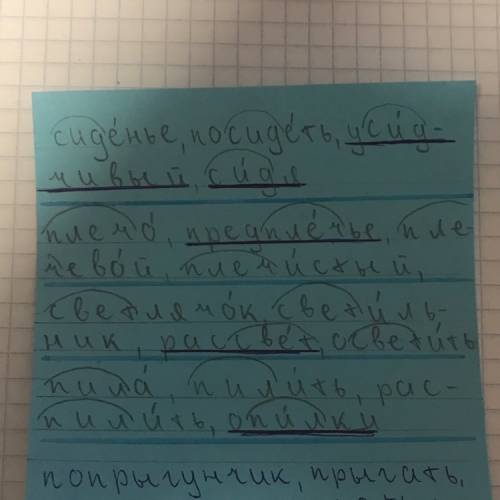 сиде́нье, посиде́ть, уси́д-
чивый, си́дя
плечо́, предпле́чье, пле-
чево́й, плечи́стый,
светлячо́к, свети́ль-
ник, рассве́т, освети́ть
пила́, пили́ть, рас-
пили́ть, опи́лки
попрыгунчик, прыгать,